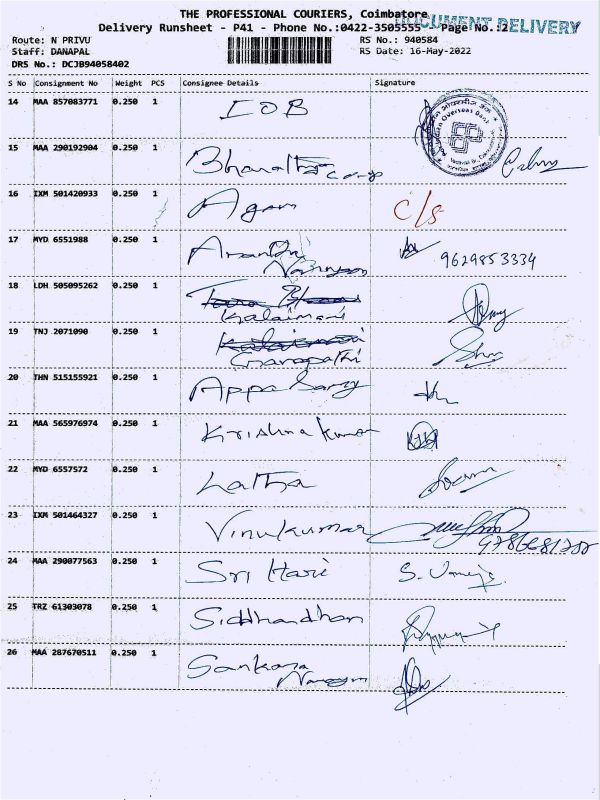 THE PROFESSIONAL COURIERS, Coimbatore
DOCUMENT DELIVERY
Delivery Runsheet - P41 - Phone No.:0422-3505555 Page No.:2
Route: N PRIVU
RS No.: 940584
Staff: DANAPAL
RS Date: 16-May-2022
DRS No.: DCJB94058402
S No Consignment No Weight PCS Consignee Details Signature
14 MAA 857083771 0.250 1 IOB
Indian Overseas Bank
15 MAA 290192904 0.250 1 Bharath
16 IXM 501420933 0.250 1 Agam C/s
17 MYD 6551988 0.250 1 Anandu
Narayanan 9629853334
18 LDH 505095262 0.250 1
Kalaimani
19 TNJ 2071090 0.250 1 Kalaimani
Ganapathi
20 THN 515155921 0.250 1 Appa Samy
21 MAA 565976974 0.250 1 Krishna kumar
22 MYD 6557572 0.250 1 Latha
23 IXM 501464327 0.250 1 Vinukumar
24 MAA 290077563 0.250 1 Sri Hari
25 TRZ 61303078 0.250 1 Siddhandhan
26 MAA 287670511 0.250 1 Sankara
Narayan